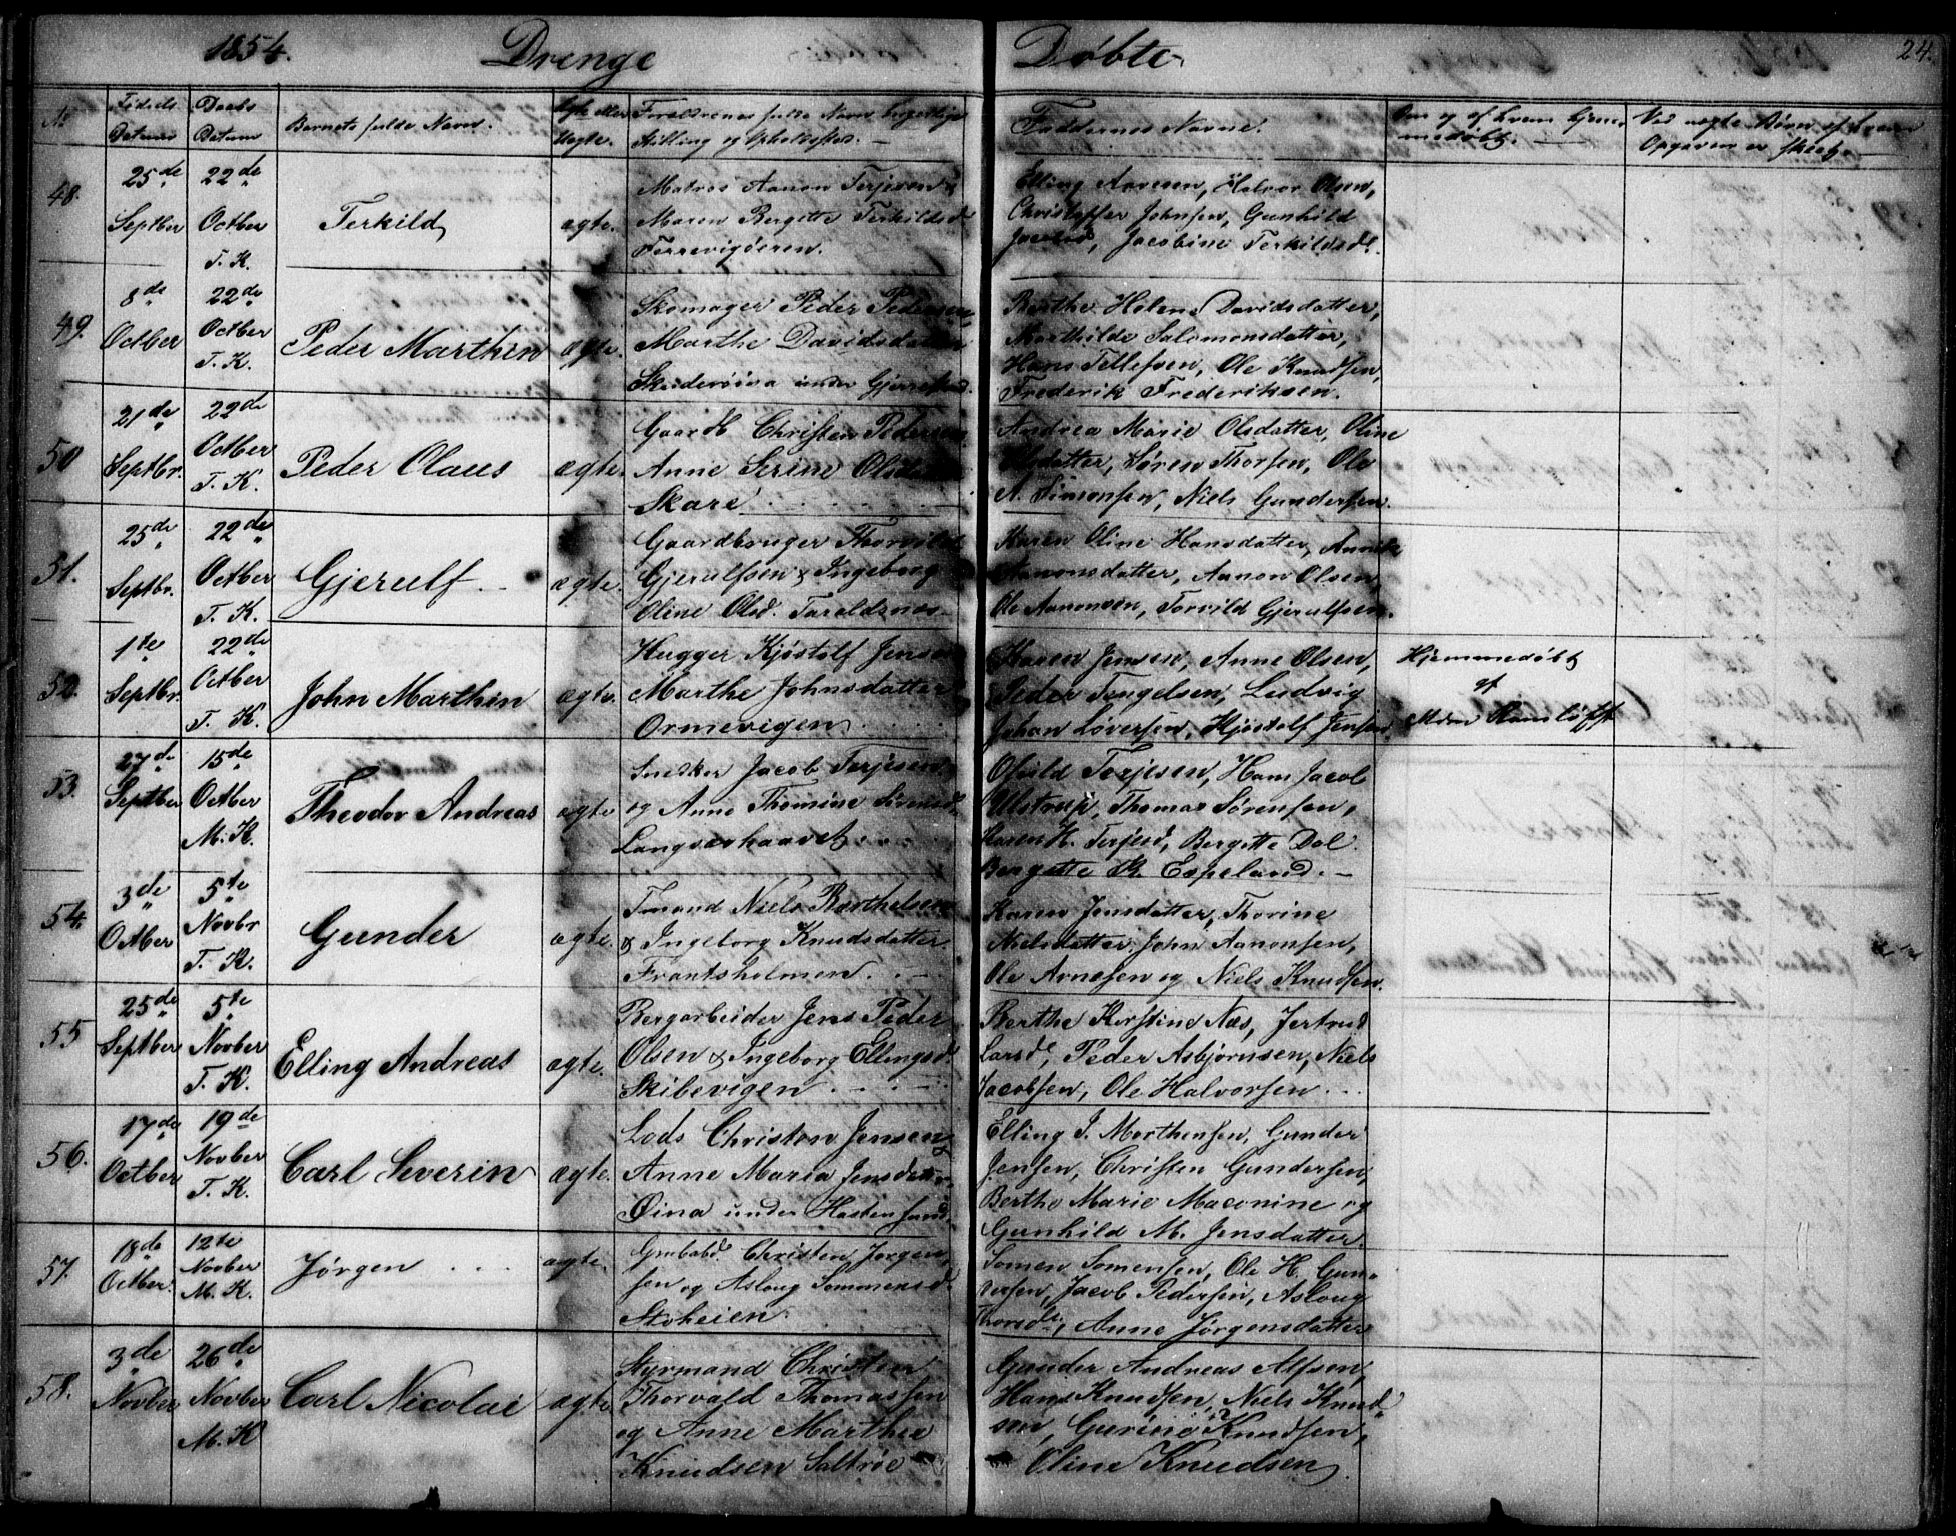 1854. Drenge Døbte 24.
No
Fødsels Datum
Daabs Datum
Barnets fulde Navn.
Ægte eller Uægte.
Forældrenes fulde Navn borgerlige
Stilling og Opholdssted. —
Faddernes Navne.
Om og af hvem hjem-
medøbt. —
Ved uægte Børn af hvem
Opgaven er skeet. —
48.
25de Septber
22de Octber T. K.
Terkild
ægte.
Matros Aanon Terjesen &
Maren Bergitte Terkildsd
Torrevigderen.
Elling Aavesen, Halvor Olsen,
Christoffer Johnsen, Gunhild
Jacobsd, Jacobine Terkildsd.
49.
8de Octber
22de Octber T. K.
Peder Marthin
ægte.
Skomager Peder Pedersen,
Marthe Davidsdatter
under
Berthe Helene Davidsdatter,
Marthilde Salomonsdatter,
Hans Tellefsen, Ole Knudsen,
Frederik Frederiksen.
50
21de Septbr.
22de Octber T. K.
Peder Olaus
ægte.
Gaardb Christen Pedersen
Anne Serine Olsd
Skare
Andrea Marie Olsdatter, Oline
Olsdatter, Søren Thorsen, Ole
A. Simonsen, Niels Gundersen.
51.
25de Septbr.
22de Octber T. K.
Gjerulf
ægte.
Gaardbruger Thorvild
Gjerulfsen & Ingeborg
Oline Olsd. Taraldsnes
Karen Oline Hansdatter, Annik
Aanonsdatter, Aanon Olsen,
Ole Aanonsen, Torvild Gjerulfsen.
52.
1te Septbr.
22de Octber T. K.
John Marthin
ægte.
Hugger Kjøstolf Jensen
Marthe Johnsdatter
Ormevigen
Karen Jensen, Anne Olsen,
Peder Tengelsen, Ludvig
Johan Løversen, Kjøstolf Jensen.
Hjemmedøbt
af
53.
27de Septber
15de Octber M. K.
Theodor Andreas
ægte
Snedker Jacob Terjesen
og Anne Thomine Sørensd.
Langsævhaavet
Osuld Terjesen, Hans Jacob
Ulstrup, Thomas Sørensen,
Karen H. Terjesd, Bergette Dal.
Bergitte K. Espeland. —
54.
3de Octber
5te Novbr T. K.
Gunder
ægte.
Tømand Niels Barthelsen
& Ingeborg Knudsdatter
Frantsholmen. —
Karen Jensdatter, Thorine
Nielsdatter, John Aanonsen,
Ole Arnesen og Niels Knudsen.
55
25de Septber
5te Novber T. K.
Elling Andreas
ægte.
Bergarbeider Jens Peder
Olsen & Ingeborg Ellingsd.
Skibevigen
Berthe Kirstine Næs, Jertrud
Larsd, Peder Asbjørnsen, Niels
Jacobsen, Ole Halvorsen
56.
17de Octber
19de Novber T. K.
Carl Severin
ægte.
Lods Christen Jensen &
Anne Maria Jensdatter.
Øina under Hastensund.
Elling J. Morthensen, Gunder
Jensen, Christen Gundersen,
Berthe Marie Maconine og
Gunhild M. Jensdatter.
57.
18de Octber.
12te Novber M. K.
Jørgen
ægte.
Christen Jørgen-
sen og Aslaug Sommensd.
Stoheien
Somen Somensen, Ole H. Gun-
dersen, Jacob Pedersen, Aslaug
Thorsd., Anne Jørgensdatter
58.
3de Novber
26de Novber M. K
Carl Nicolai
ægte
Styrmand Christen
Thorvald Thomassen
og Anne Marthea
Knudsen Saltrøe
Gunder Andreas Alfsen,
Hans Knudsen, Niels Knud-
sen, Gurine Knudsen,
Oline Knudsen